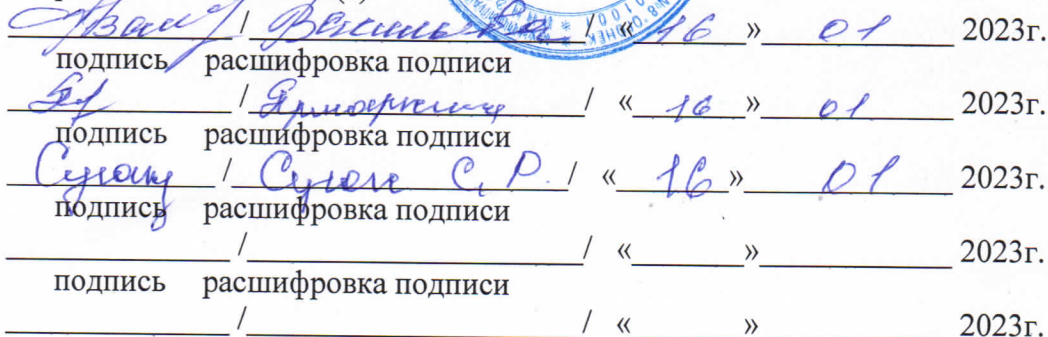 / / « 16 » 01 2023г.
подпись расшифровка подписи
/ / « 16 » 01 2023г.
подпись расшифровка подписи
/ С. Р. / « 16 » 01 2023г.
подпись расшифровка подписи
/ / « » 2023г.
подпись расшифровка подписи
/ / « » 2023г.